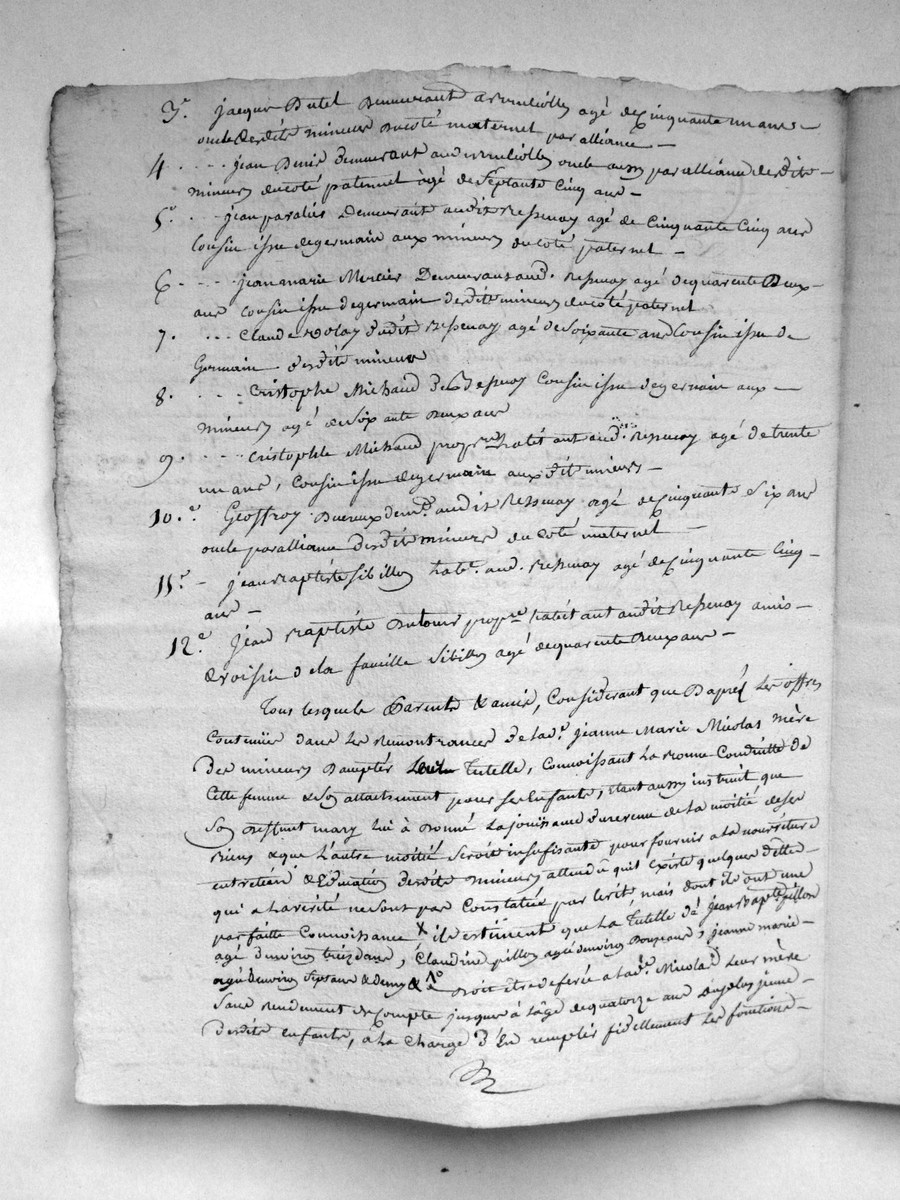 3.e Jacques Dutel Demeurant agé de Cinquante un ans
oncle desdits mineurs du coté maternel par alliance
4. .... jean Denis demeurant oncle aussi par alliance desdits
mineurs du coté paternel àgé de septante Cinq ans
5.e ... jean Demeurant audit Ressuay agé de Cinquante Cinq ans
Cousin issu de germain aux mineurs du coté paternel
6. .... jean marie Mercier Demeurans aud. Ressuay agé de quarente Deux
ans cousin issu de germain desdits mineurs du coté paternel
7. ... Claude dudit Ressuay agé de Soixante ans Cousin issu de
Germain desdits mineurs
8. .... Cristophe Michaud de Cousin issu de germain aux
mineurs agé de soixante Deux ans
9. .... Cristophle Michaud prop.re habitant aud. Ressuay agé de trente
un ans, Cousin issu de germain auxdit mineurs
10.e Geoffroy dem.t audit Ressuay agé de Cinquante Six ans
oncle par alliance desdits mineurs du coté maternel
11.e jean Baptiste Sibillon hab.t aud. Ressuay agé de Cinquante Cinq
ans
12.e Jean Baptiste prop.re habitant audit Ressuay amis
& voisin de la famille Sibillon agé de quarente Deux ans
Tous lesquels Parents & amis, Considerant que D'aprés Les offres
Contenües dans Les Remontrances de lad.e jeanne Marie Nicolas mère
Des mineurs D'accepter Tutelle, Connoissant La bonne Conduitte de
Cette femme & son attachement pour ses Enfants, étant aussi instruit que
son deffunt mary lui à donné La jouissance du revenu de la moitié de ses
biens & que L'autre moitié seroit insufisante pour fournir a la nourriture
entretien & Education desdits mineurs attendû quil existe quelques dettes
qui a la verité ne sont pas Constatées par écrit mais dont ils ont une
parfaite Connoissance, X ils estiment que La Tutelle de jean Bapte
agé d'environ treize ans, Claudine agée d'environ ans, jeanne marie
agée d'environ sept ans & demy & doit être deferée a lad.e Nicolas Leur mère
Sans rendement de Compte jusques à l'âge de quatorze ans du plus jeune
desdits enfants, à La Charge d'En remplir fidellement Les fonctions